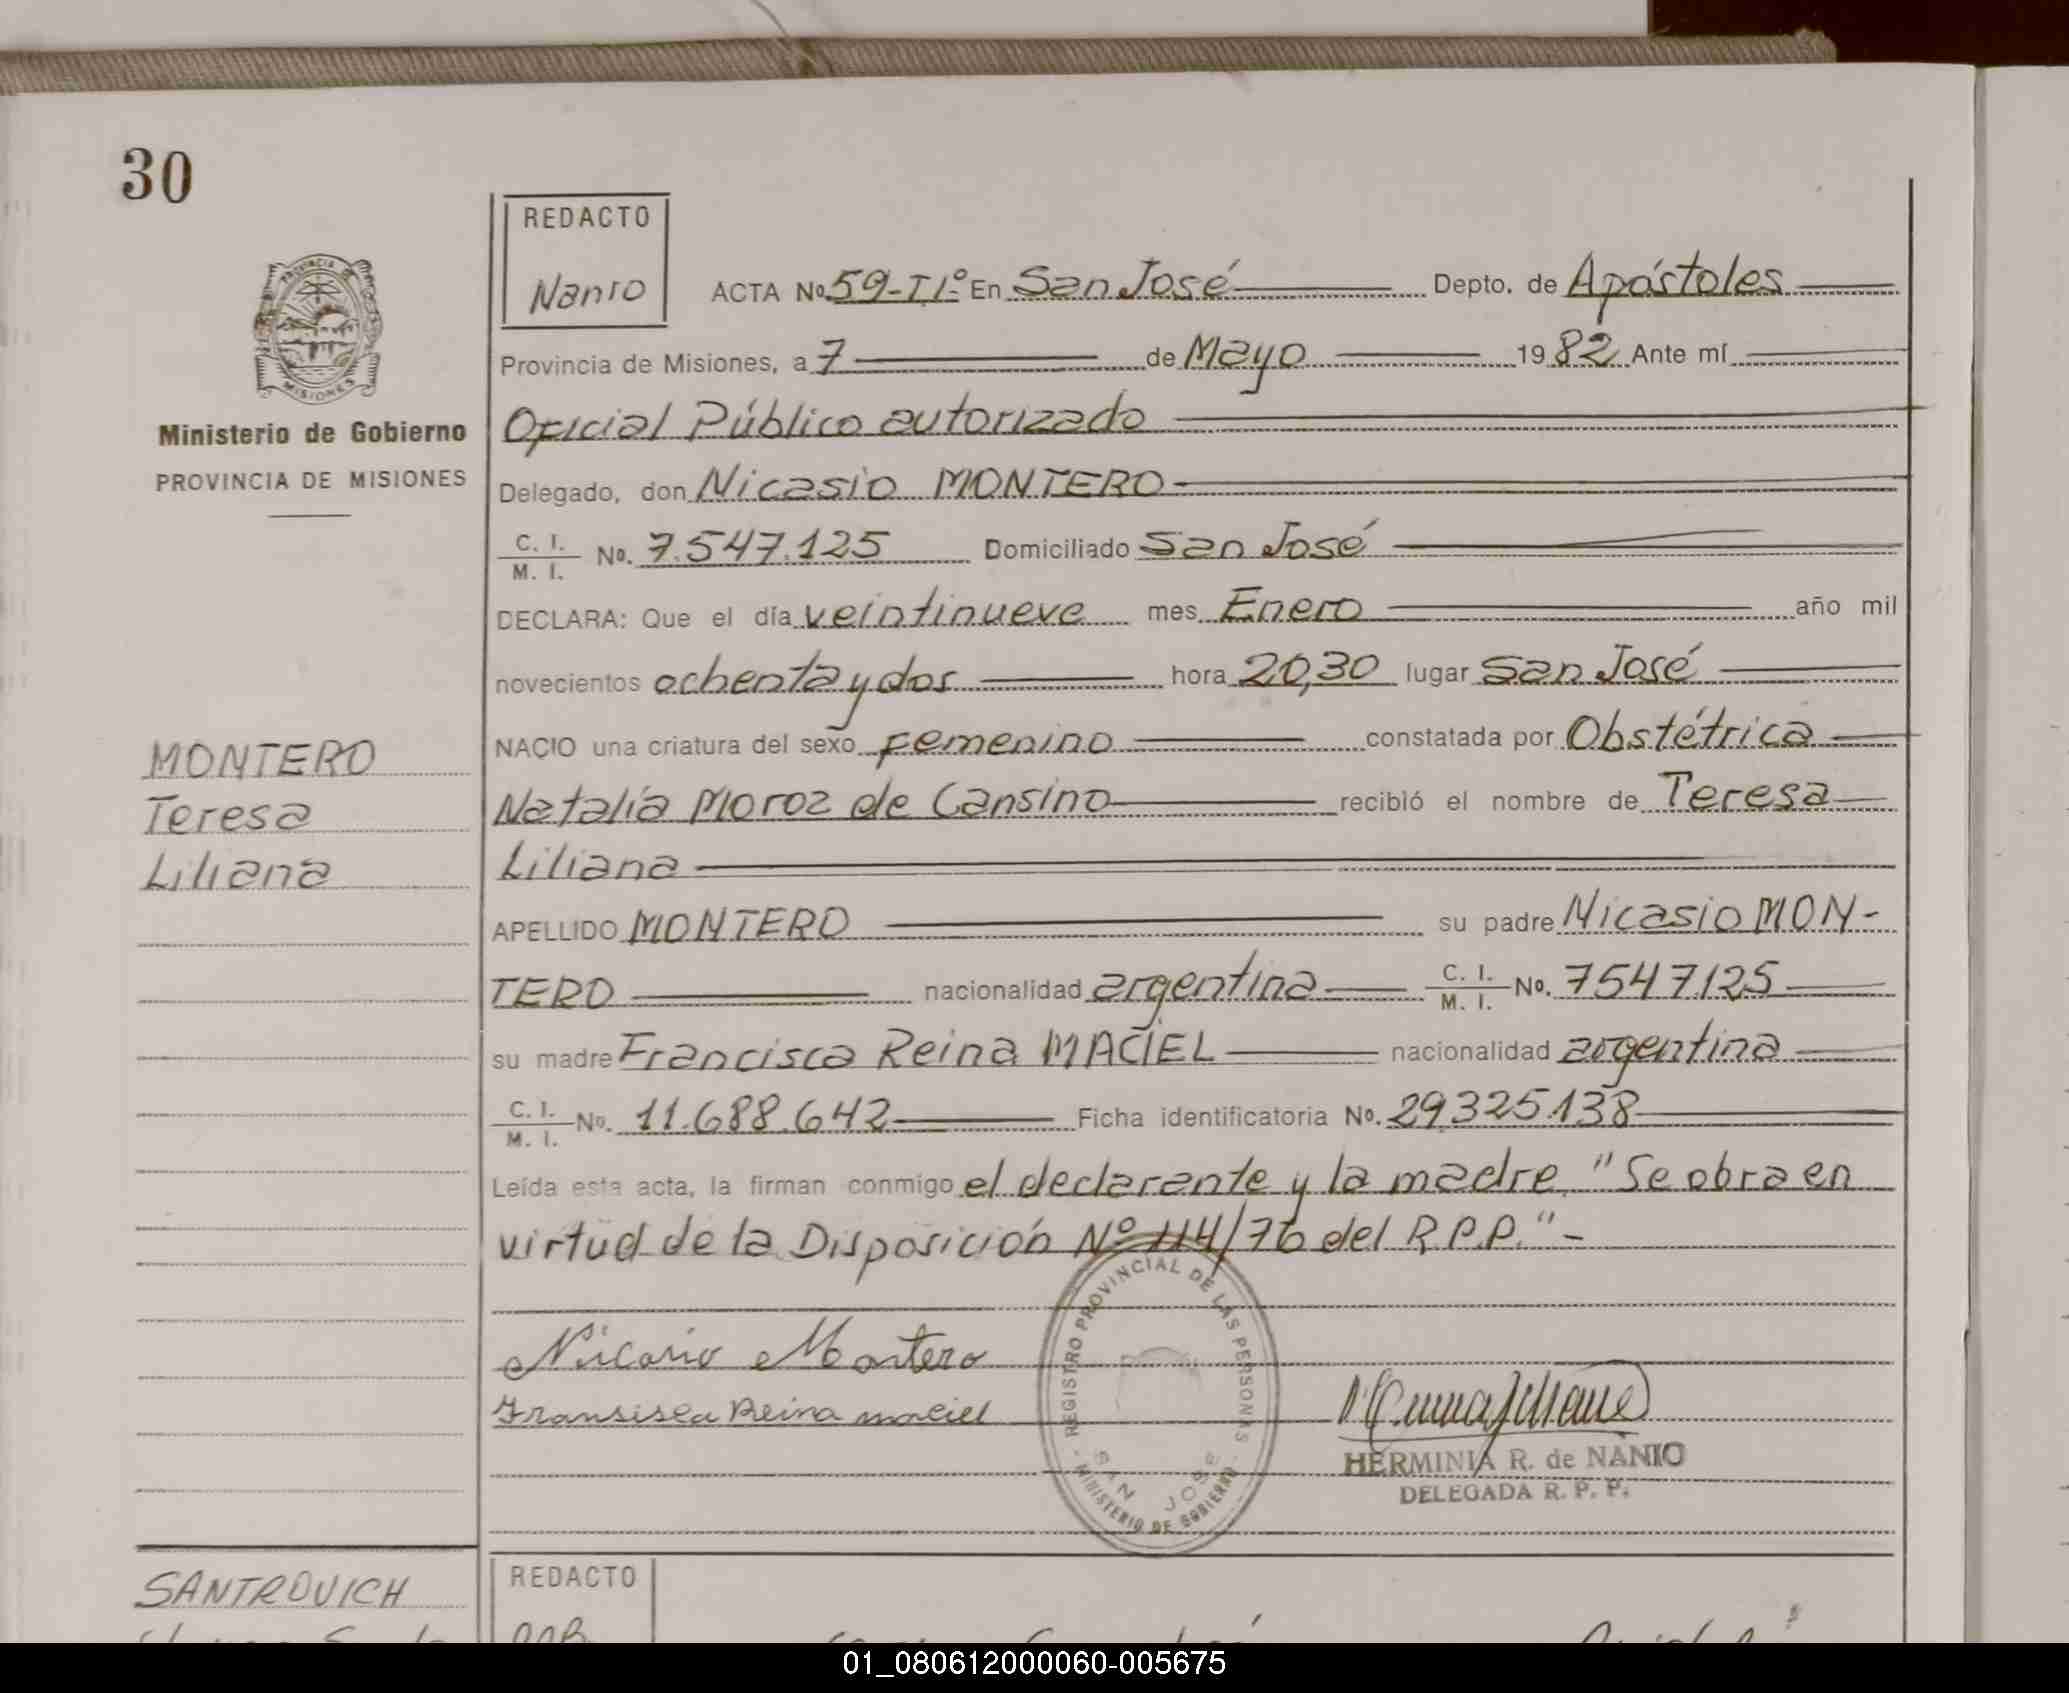 30
REDACTO
Nanio
ACTA No. 59-TIº En San José Depto. de Apóstoles
Provincia de Misiones, a 7 de Mayo 1982 Ante mí
Oficial Público autorizado
Delegado, don Nicasio MONTERO
C. I.
M. I. No. 7.547.125 Domiciliado San José
DECLARA: Que el día veintinueve mes Enero año mil
novecientos ochenta y dos hora 20,30 lugar San José
NACIO una criatura del sexo femenino constatada por Obstétrica
Natalia Moroz de Cansino recibió el nombre de Teresa
Liliana
APELLIDO MONTERO su padre Nicasio MON-
TERO nacionalidad argentina C. I.
M. I. No. 7547.125
su madre Francisca Reina MACIEL nacionalidad argentina
C. I.
M. I. No. 11.688.642 Ficha identificatoria No. 29325.138
Leída esta acta, la firman conmigo el declarante y la madre "Se obra en
virtud de la Disposición Nº 114/76 del R.P.P." -
Nicasio Montero
Fransisca Reina maciel
REGISTRO PROVINCIAL DE LAS PERSONAS
SAN JOSE
MINISTERIO DE GOBIERNO
HERMINIA R. de NANIO
DELEGADA R. P. P.
PROVINCIA DE
MISIONES
Ministerio de Gobierno
PROVINCIA DE MISIONES
MONTERO
Teresa
Liliana
SANTROVICH
REDACTO
01_080612000060-005675